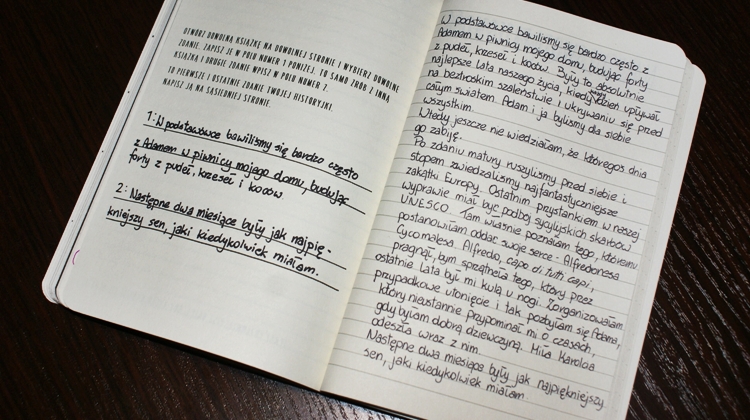 OTWÓRZ DOWOLNĄ KSIĄŻKĘ NA DOWOLNEJ STRONIE I WYBIERZ DOWOLNE
ZDANIE. ZAPISZ JE W POLU NUMER 1 PONIŻEJ. TO SAMO ZRÓB Z INNĄ
KSIĄŻKĄ I DRUGIE ZDANIE WPISZ W POLU NUMER 2.
TO PIERWSZE I OSTATNIE ZDANIE TWOJEJ HISTORYJKI.
NAPISZ JĄ NA SĄSIEDNIEJ STRONIE.
1: W podstawówce bawiliśmy się bardzo często
z Adamem w piwnicy mojego domu, budując
forty z pudeł, krzeseł i koców
2: Następne dwa miesiące były jak najpię-
kniejszy sen, jaki kiedykolwiek miałam.
W podstawówce bawiliśmy się bardzo często z
Adamem w piwnicy mojego domu, budując forty
z pudeł, krzeseł i koców. Były to absolutnie
najlepsze lata naszego życia, kiedy każdy dzień upływał
na beztroskim szaleństwie i ukrywaniu się przed
całym światem. Adam i ja byliśmy dla siebie
wszystkim.
Wtedy jeszcze nie wiedziałam, że któregoś dnia
go zabiję.
Po zdaniu matury ruszyliśmy przed siebie i
stopem zwiedzaliśmy najfantastyczniejsze
zakątki Europy. Ostatnim przystankiem w naszej
wyprawie miał być podbój sycylijskich skarbów
UNESCO. Tam właśnie poznałam tego, któremu
postanowiłam oddać swoje serce - Alfredonesa
Cycomalesa. Alfredo, capo di tutti capi,
pragnął, bym sprzątnęła tego, który przez
ostatnie lata był mi kulą u nogi. Zorganizowałam
przypadkowe utonięcie i tak pozbyłam się Adama,
który nieustannie przypominał mi o czasach,
gdy byłam dobrą dziewczyną. Miła Karolca
odeszła wraz z nim.
Następne dwa miesiące były jak najpiękniejszy
sen, jaki kiedykolwiek miałam.